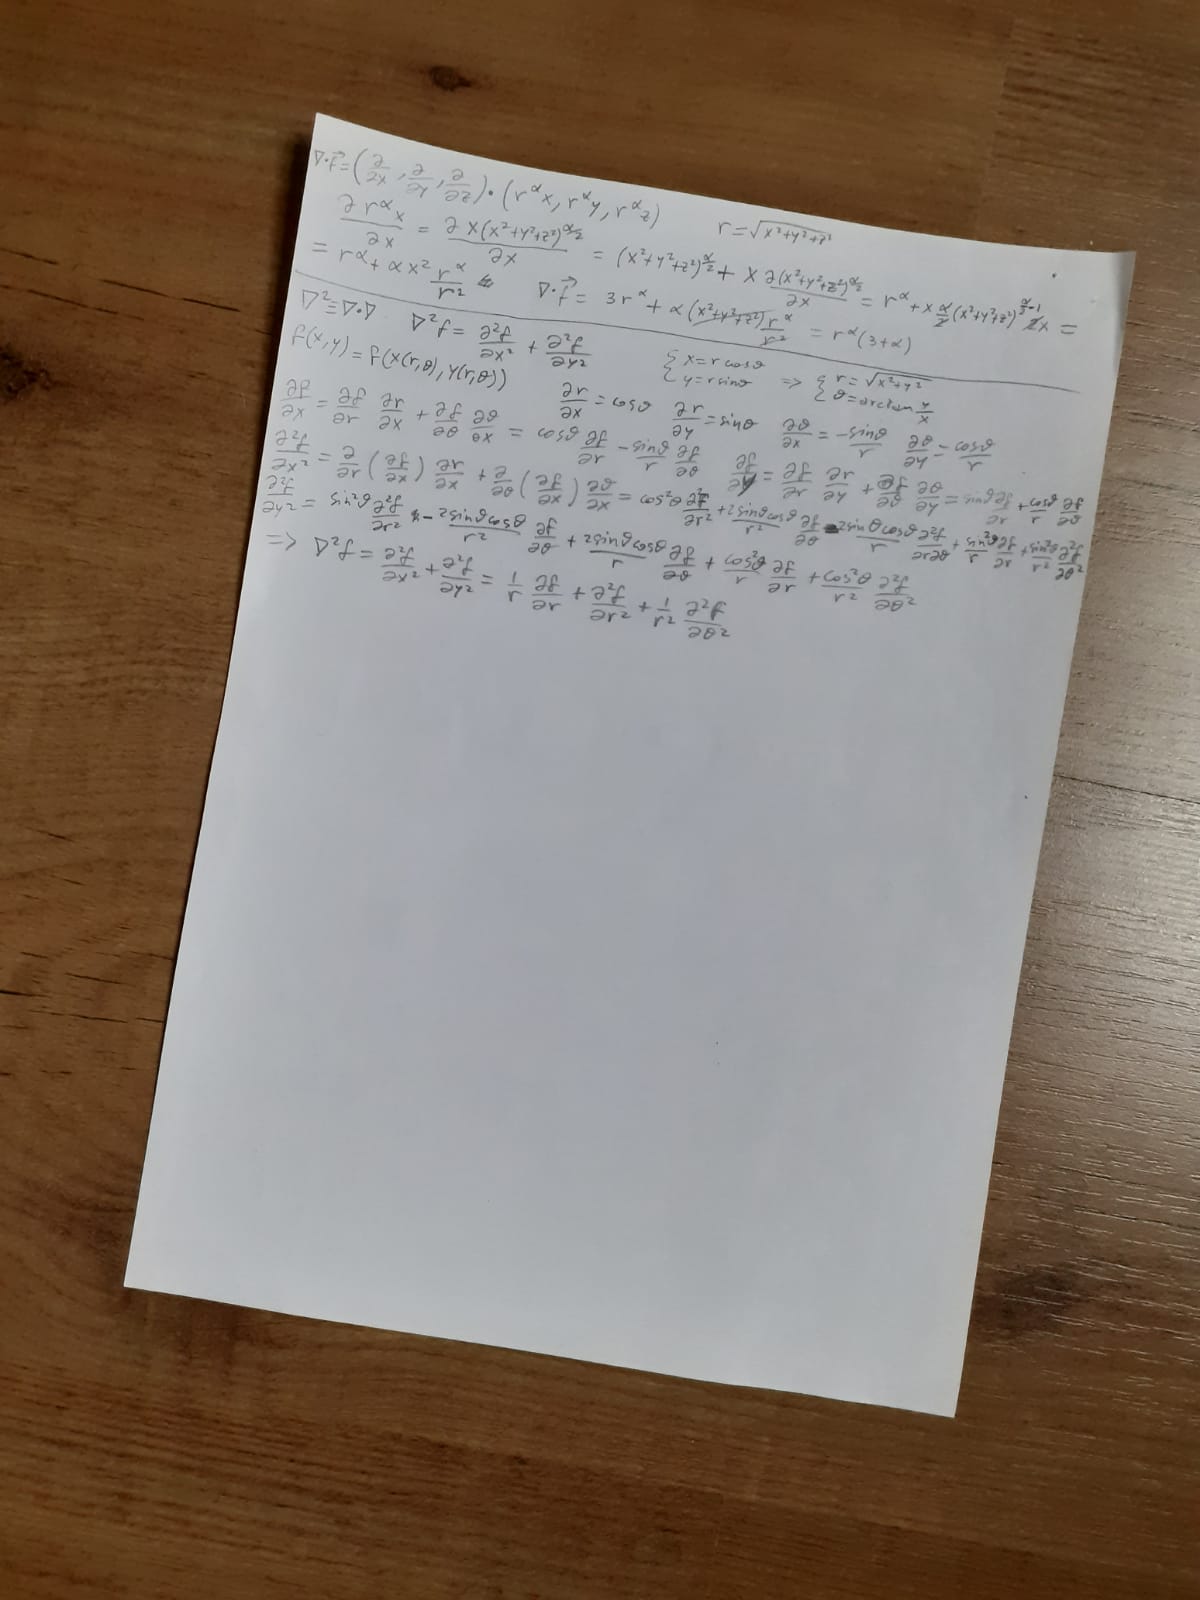 ∇·f⃗ = (∂/∂x, ∂/∂y, ∂/∂z)·(r^α x, r^α y, r^α z)   r = √(x²+y²+z²)
∂r^α x/∂x = ∂x(x²+y²+z²)^(α/2)/∂x = (x²+y²+z²)^(α/2) + x ∂(x²+y²+z²)^(α/2)/∂x = r^α + x α/2 (x²+y²+z²)^(α/2-1) 2x =
= r^α + αx² r^α/r²   ∇·f⃗ = 3r^α + α(x²+y²+z²) r^α/r² = r^α(3+α)
∇² ≡ ∇·∇   ∇²f = ∂²f/∂x² + ∂²f/∂y²
f(x,y) = f(x(r,θ), y(r,θ))   { x = r cosθ   y = r sinθ ⇒ { r = √(x²+y²)   θ = arctan y/x
∂f/∂x = ∂f/∂r ∂r/∂x + ∂f/∂θ ∂θ/∂x = cosθ ∂f/∂r - sinθ/r ∂f/∂θ   ∂r/∂x = cosθ   ∂r/∂y = sinθ   ∂θ/∂x = -sinθ/r   ∂θ/∂y = cosθ/r
∂f/∂y = ∂f/∂r ∂r/∂y + ∂f/∂θ ∂θ/∂y = sinθ ∂f/∂r + cosθ/r ∂f/∂θ
∂²f/∂x² = ∂/∂r (∂f/∂x) ∂r/∂x + ∂/∂θ (∂f/∂x) ∂θ/∂x = cos²θ ∂²f/∂r² + 2sinθcosθ/r² ∂f/∂θ - 2sinθcosθ/r ∂²f/∂r∂θ + sin²θ/r ∂f/∂r + sin²θ/r² ∂²f/∂θ²
∂²f/∂y² = sin²θ ∂²f/∂r² - 2sinθcosθ/r² ∂f/∂θ + 2sinθcosθ/r ∂f/∂θ + cos²θ/r ∂f/∂r + cos²θ/r² ∂²f/∂θ²
⇒ ∇²f = ∂²f/∂x² + ∂²f/∂y² = 1/r ∂f/∂r + ∂²f/∂r² + 1/r² ∂²f/∂θ²